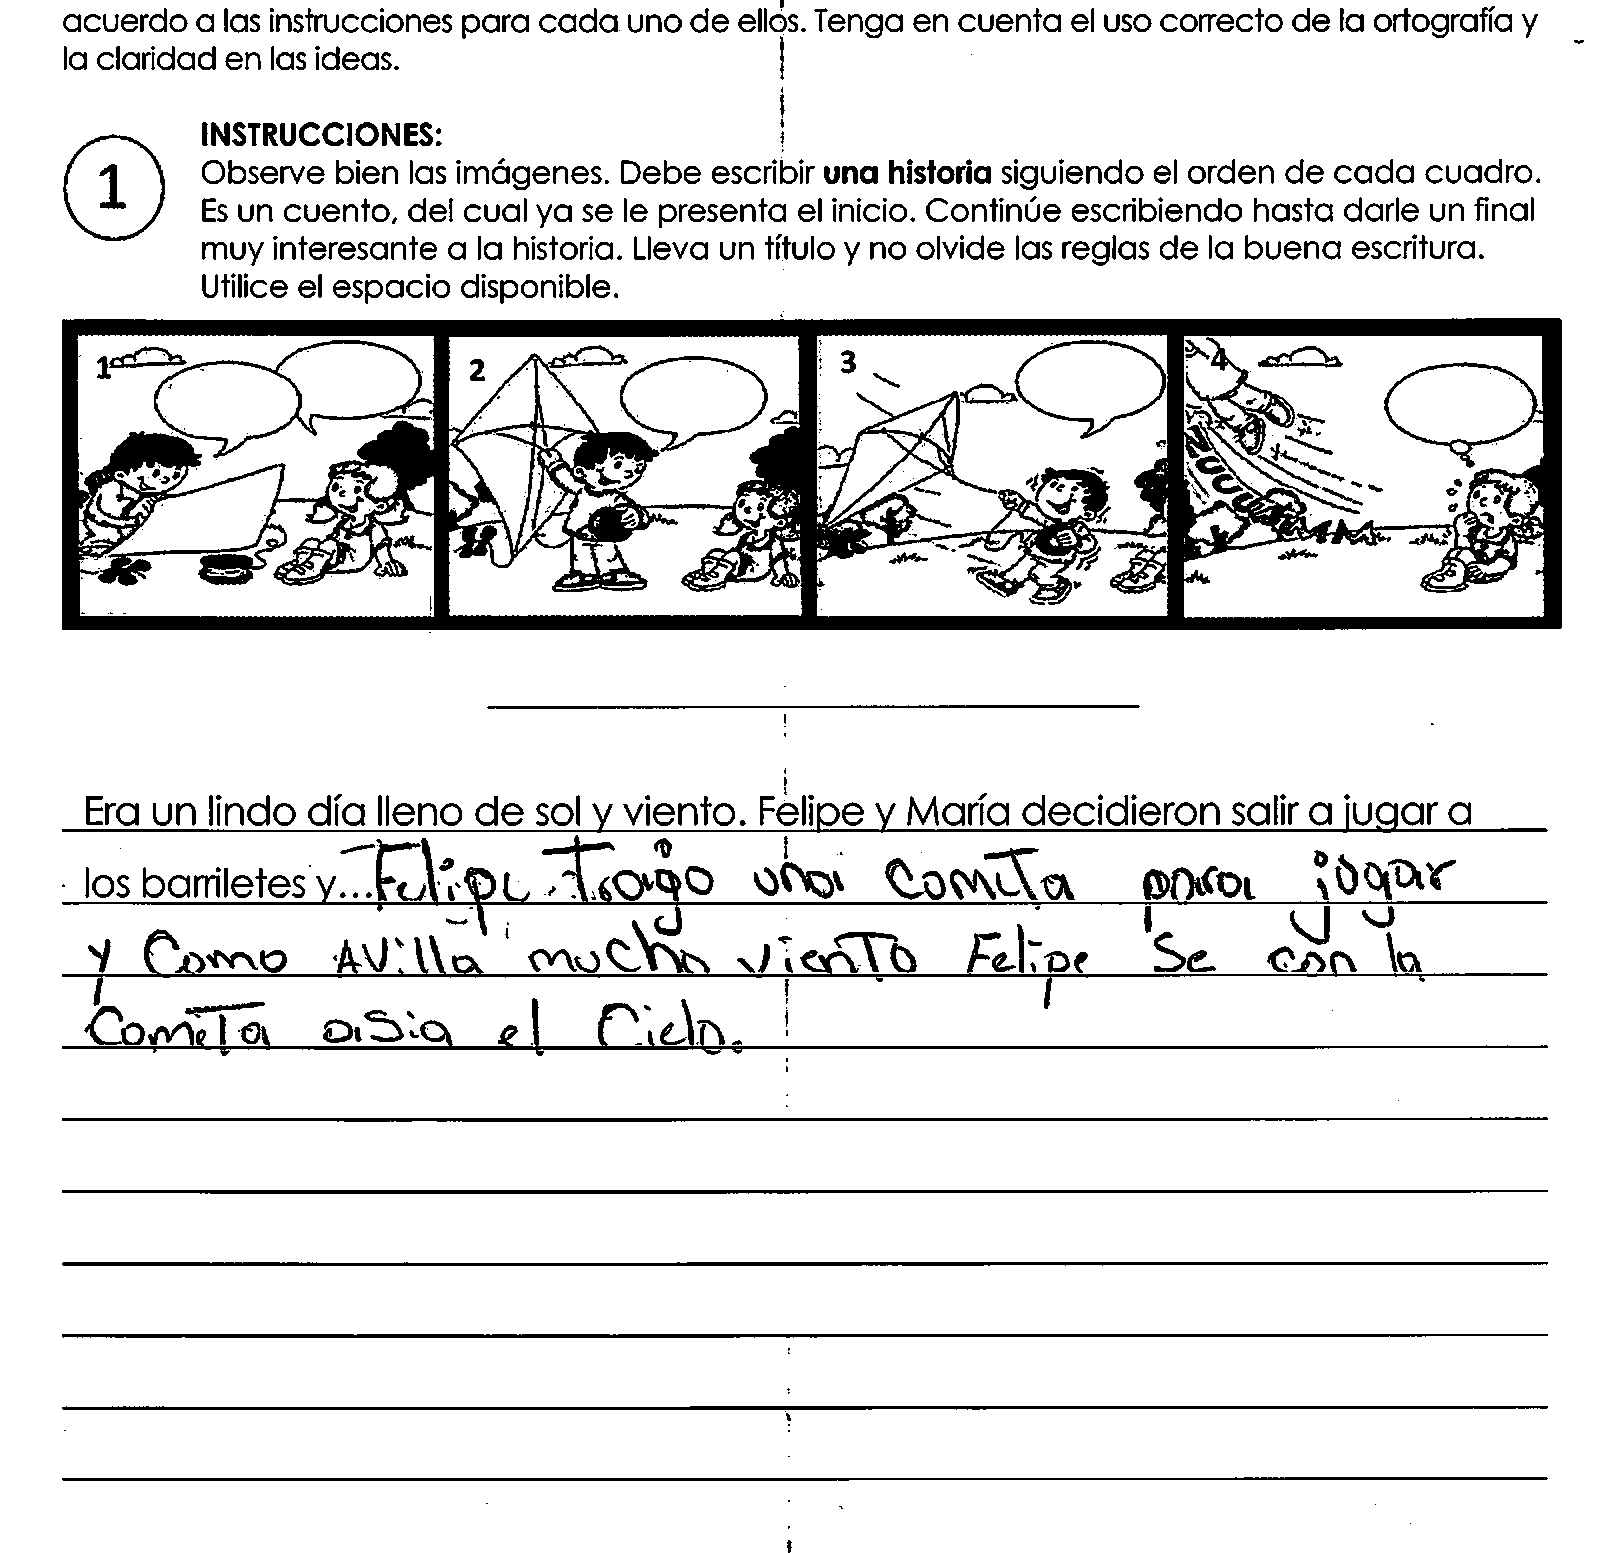 acuerdo a las instrucciones para cada uno de ellos. Tenga en cuenta el uso correcto de la ortografía y
la claridad en las ideas.
1
INSTRUCCIONES:
Observe bien las imágenes. Debe escribir una historia siguiendo el orden de cada cuadro.
Es un cuento, del cual ya se le presenta el inicio. Continúe escribiendo hasta darle un final
muy interesante a la historia. Lleva un título y no olvide las reglas de la buena escritura.
Utilice el espacio disponible.
1 2 3 4
Era un lindo día lleno de sol y viento. Felipe y María decidieron salir a jugar a
los barriletes y... Felipe traigo una cometa para jugar
y Como AVilla mucho viento Felipe Se con la
Cometa asia el Cielo.